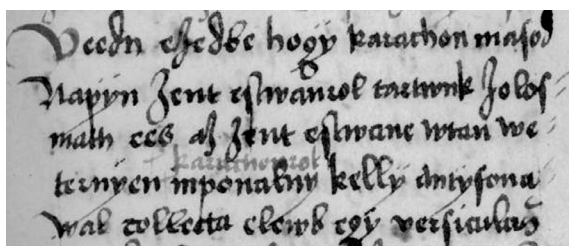 Veedn ezedbe hogÿ karachon masod
Napÿn Zent estwanrol tartwnk Zolos
math ees az Zent estwane wtan we
karachonrol
ternÿen mponalnÿ kellÿ antÿfona
wal collecta elewb egÿ versiculus